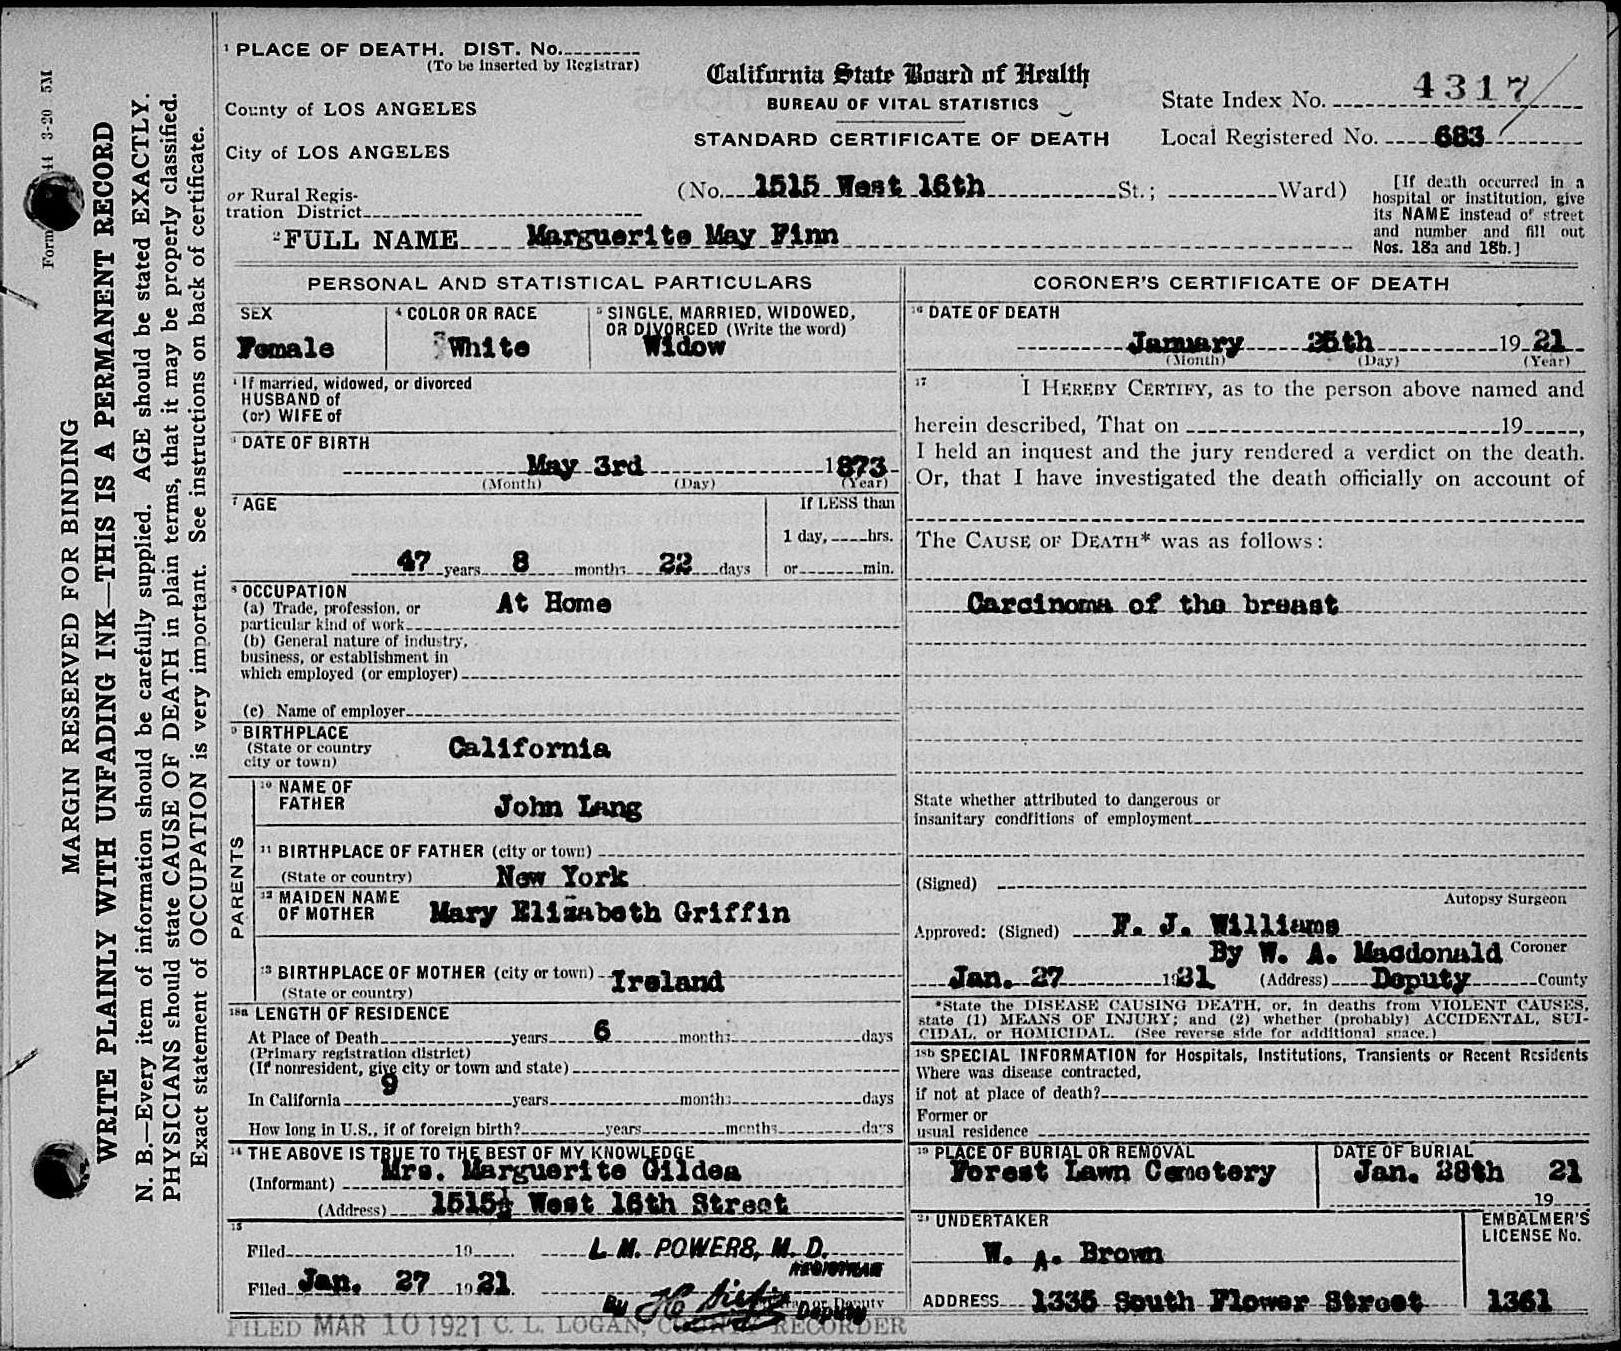 MARGIN RESERVED FOR BINDING
WRITE PLAINLY WITH UNFADING INK—THIS IS A PERMANENT RECORD
N. B.—Every item of information should be carefully supplied. AGE should be stated EXACTLY.
PHYSICIANS should state CAUSE OF DEATH in plain terms, that it may be properly classified.
Exact statement of OCCUPATION is very important. See instructions on back of certificate.
Form 44 3-20 5M
1 PLACE OF DEATH. DIST. No.
(To be inserted by Registrar)
County of LOS ANGELES
City of LOS ANGELES
or Rural Regis-
tration District
California State Board of Health
BUREAU OF VITAL STATISTICS
STANDARD CERTIFICATE OF DEATH
State Index No. 4317
Local Registered No. 683
(No. 1515 West 16th St.; Ward)
[If death occurred in a
hospital or institution, give
its NAME instead of street
and number and fill out
Nos. 18a and 18b.]
2 FULL NAME Marguerite May Finn
PERSONAL AND STATISTICAL PARTICULARS
SEX
Female
4 COLOR OR RACE
White
5 SINGLE, MARRIED, WIDOWED,
OR DIVORCED (Write the word)
Widow
If married, widowed, or divorced
HUSBAND of
(or) WIFE of
DATE OF BIRTH
May 3rd 1873
(Month) (Day) (Year)
7 AGE
47 years 8 months 22 days
If LESS than
1 day, hrs.
or min.
8 OCCUPATION
(a) Trade, profession, or
particular kind of work
At Home
(b) General nature of industry,
business, or establishment in
which employed (or employer)
(c) Name of employer
9 BIRTHPLACE
(State or country
city or town)
California
PARENTS
10 NAME OF
FATHER
John Lang
11 BIRTHPLACE OF FATHER (city or town)
(State or country) New York
12 MAIDEN NAME
OF MOTHER
Mary Elizabeth Griffin
13 BIRTHPLACE OF MOTHER (city or town) Ireland
(State or country)
18a LENGTH OF RESIDENCE
At Place of Death years 6 months days
(Primary registration district)
(If nonresident, give city or town and state)
In California 9 years months days
How long in U.S., if of foreign birth? years months days
14 THE ABOVE IS TRUE TO THE BEST OF MY KNOWLEDGE
(Informant) Mrs. Marguerite Gildea
(Address) 1515½ West 16th Street
15
Filed 19 L. M. POWERS, M. D.
REGISTRAR
Filed Jan. 27 1921
By Deputy
CORONER'S CERTIFICATE OF DEATH
16 DATE OF DEATH
January 25th 1921
(Month) (Day) (Year)
17 I HEREBY CERTIFY, as to the person above named and
herein described, That on 19 ,
I held an inquest and the jury rendered a verdict on the death.
Or, that I have investigated the death officially on account of
The CAUSE OF DEATH* was as follows:
Carcinoma of the breast
State whether attributed to dangerous or
insanitary conditions of employment
(Signed)
Autopsy Surgeon
Approved: (Signed) F. J. Williams
By W. A. Macdonald Coroner
Jan. 27 1921 (Address) Deputy County
*State the DISEASE CAUSING DEATH, or, in deaths from VIOLENT CAUSES,
state (1) MEANS OF INJURY; and (2) whether (probably) ACCIDENTAL, SUI-
CIDAL, or HOMICIDAL. (See reverse side for additional space.)
18b SPECIAL INFORMATION for Hospitals, Institutions, Transients or Recent Residents
Where was disease contracted,
if not at place of death?
Former or
usual residence
19 PLACE OF BURIAL OR REMOVAL
Forest Lawn Cemetery
DATE OF BURIAL
Jan. 28th 21
19
UNDERTAKER
W. A. Brown
EMBALMER'S
LICENSE No.
1361
ADDRESS 1335 South Flower Street
FILED MAR 10 1921 C. L. LOGAN, COUNTY RECORDER